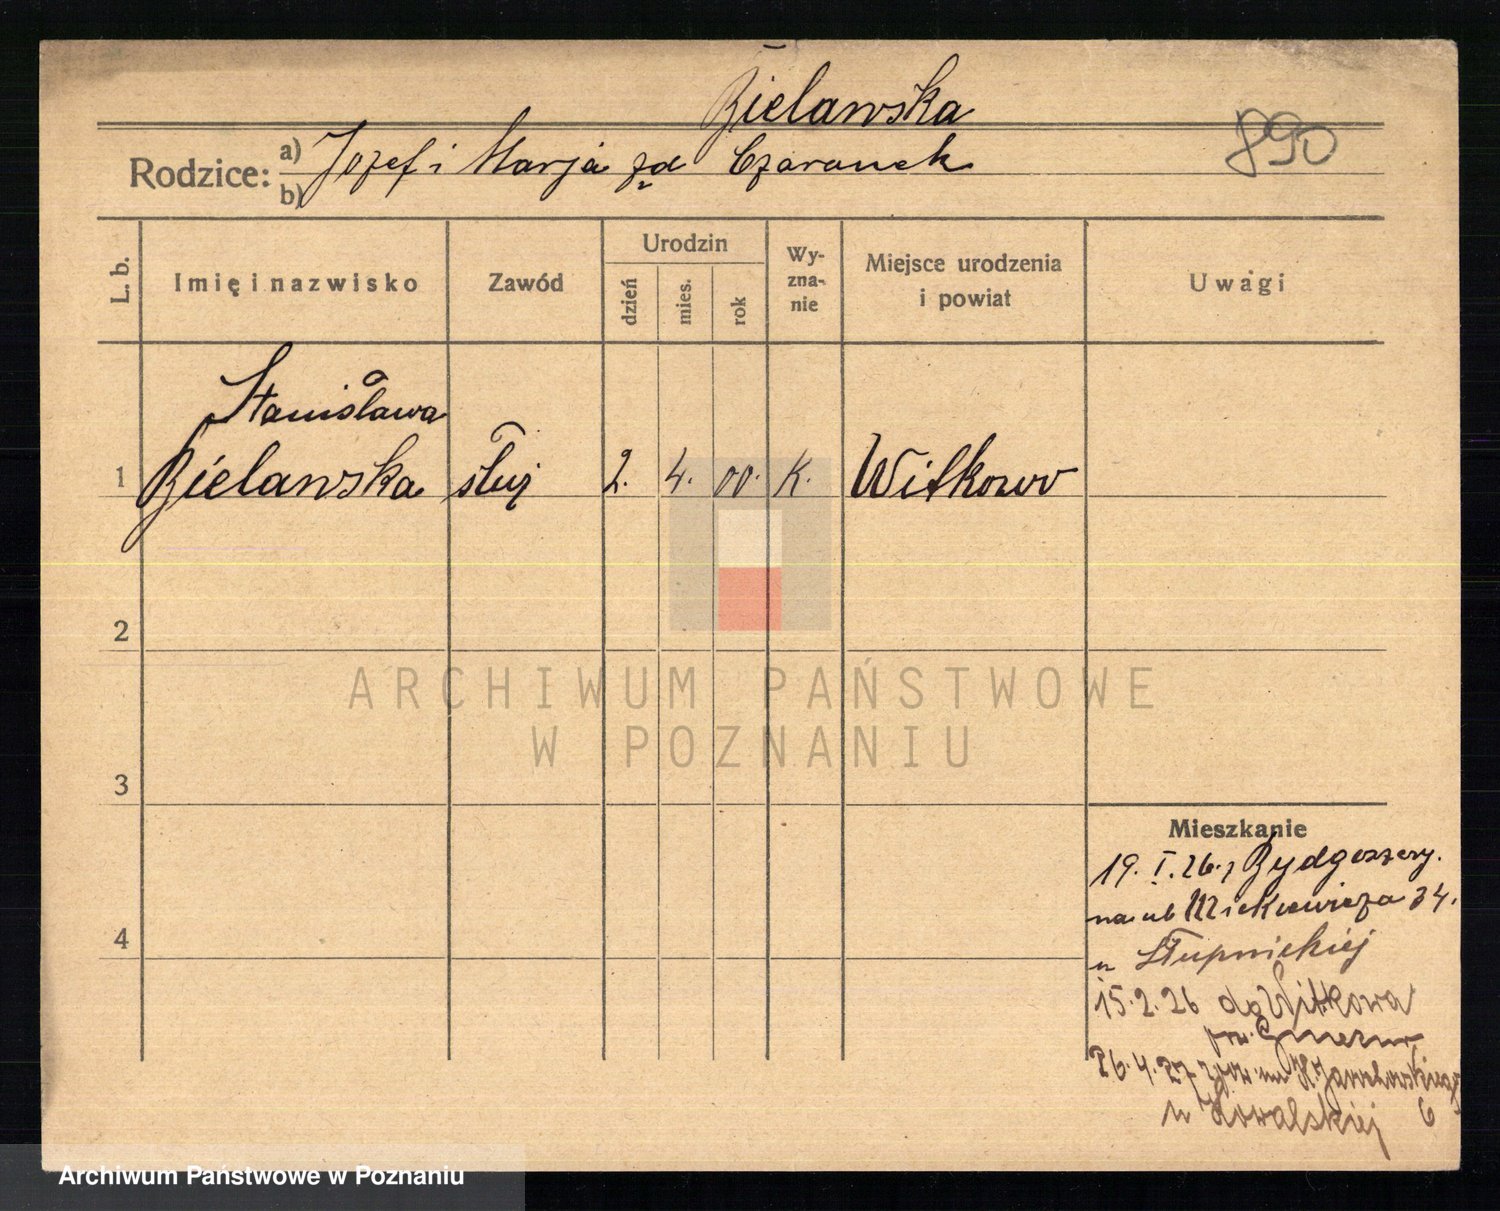 Bielawska
890
Rodzice: a) Jozef i Marja zd Czaranek
b)
L. b.
Imię i nazwisko
Zawód
Urodzin
dzień
mies.
rok
Wy-
zna-
nie
Miejsce urodzenia
i powiat
Uwagi
Stanisława
1 Bielawska służ 2. 4. 00. K. Witkowo
2
3
4
Mieszkanie
19. I. 26. z Bydgoszczy.
na ul Mickiewicza 34.
u Słupnickiej
15.2.26 do Witkowa
pow. Gniezno
26.4.27
u Kowalskiej 6
ARCHIWUM PAŃSTWOWE
W POZNANIU
Archiwum Państwowe w Poznaniu